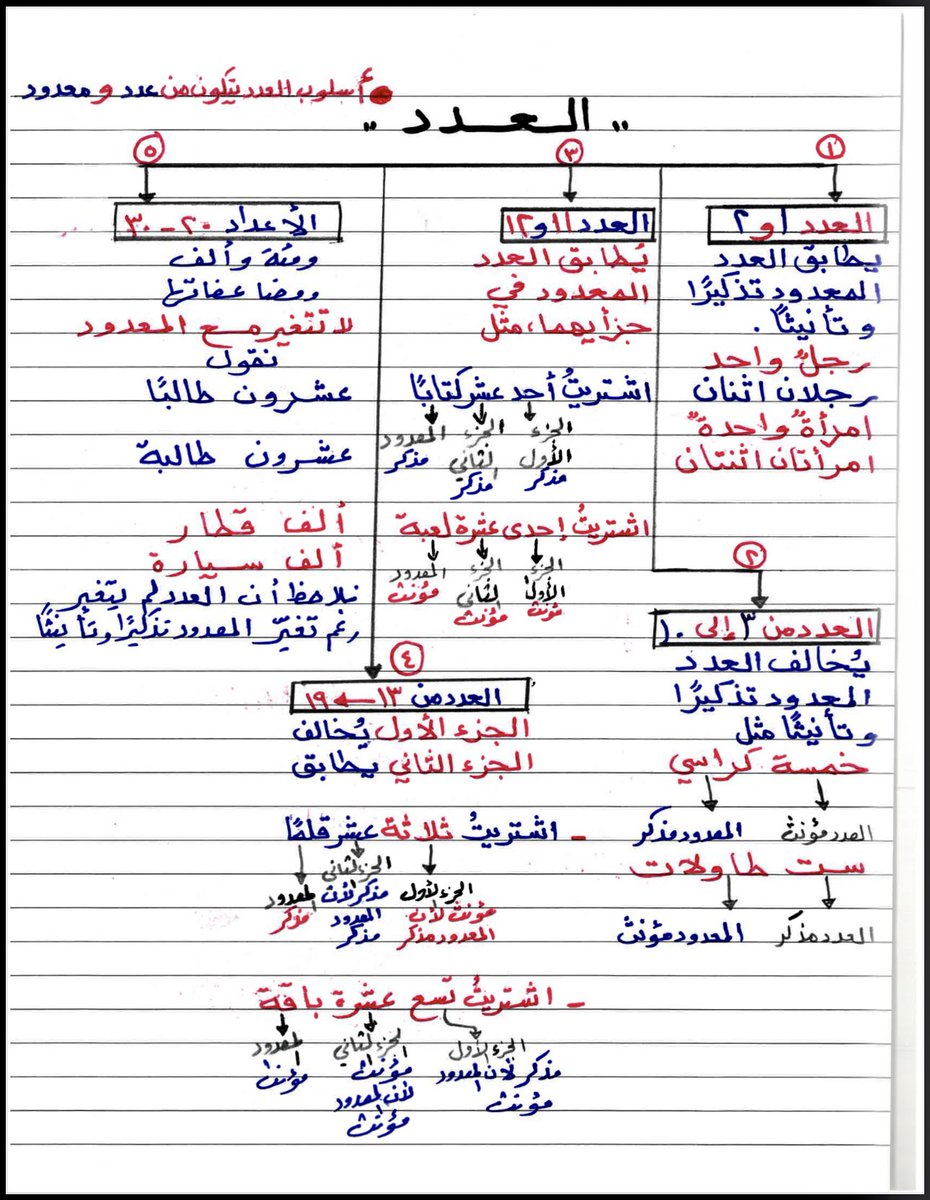 أسلوب العدد يتكون من عدد و معدود
,, العدد ,,
١
العدد ١ و ٢
يطابق العدد
المعدود تذكيرًا
و تأنيثًا .
رجلٌ واحد
رجلان اثنان
امرأةٌ واحدةٌ
امرأتان اثنتان
٢
العدد من ٣ إلى ١٠
يُخالف العدد
المعدود تذكيرًا
و تأنيثًا مثل
خمسة كراسي
العدد مؤنث المعدود مذكر
ست طاولات
العدد مذكر المعدود مؤنث
٣
العدد ١١ و ١٢
يُطابق العدد
المعدود في
جزأيهما، مثل
اشتريتُ أحد عشر كتابًا
الجزء الجزء المعدود
الأول الثاني مذكر
مذكر مذكر
اشتريتُ إحدى عشرة لعبة
الجزء الجزء المعدود
الأول الثاني مؤنث
مؤنث مؤنث
٤
العدد من ١٣ ← ١٩
الجزء الأول يُخالف
الجزء الثاني يطابق
- اشتريتُ ثلاثة عشر قلمًا
الجزء الأول الجزء الثاني المعدود
مؤنث لأن مذكر لأن مذكر
المعدود مذكر المعدود
مذكر
- اشتريتُ تسع عشرة باقة
الجزء الأول الجزء الثاني المعدود
مذكر لأن المعدود مؤنث مؤنث
مؤنث لأن المعدود
مؤنث
٥
الأعداد ٢٠ - ٣٠
ومئة وألف
ومضاعفاتها
لا تتغير مع المعدود
نقول
عشرون طالبًا
عشرون طالبة
ألف قطار
ألف سيارة
نلاحظ أن العدد لم يتغير
رغم تغيّر المعدود تذكيرًا وتأنيثًا